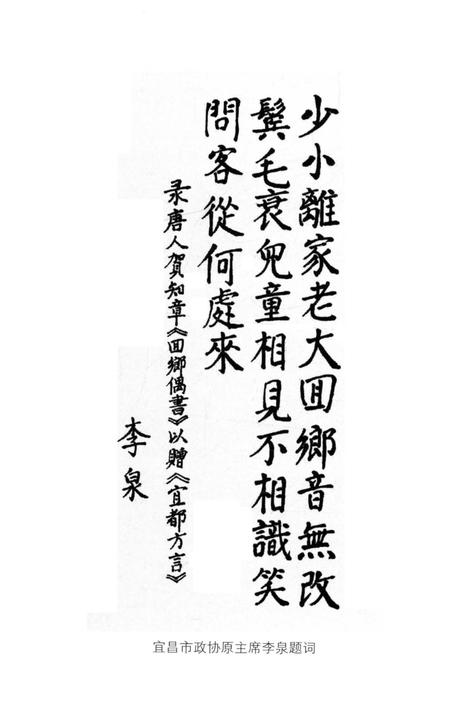 少小離家老大囬鄉音無改
鬂毛衰兒童相見不相識笑
問客從何處來
录唐人賀知章《囬鄉偶書》以贈《宜都方言》
李泉
宜昌市政协原主席李泉题词